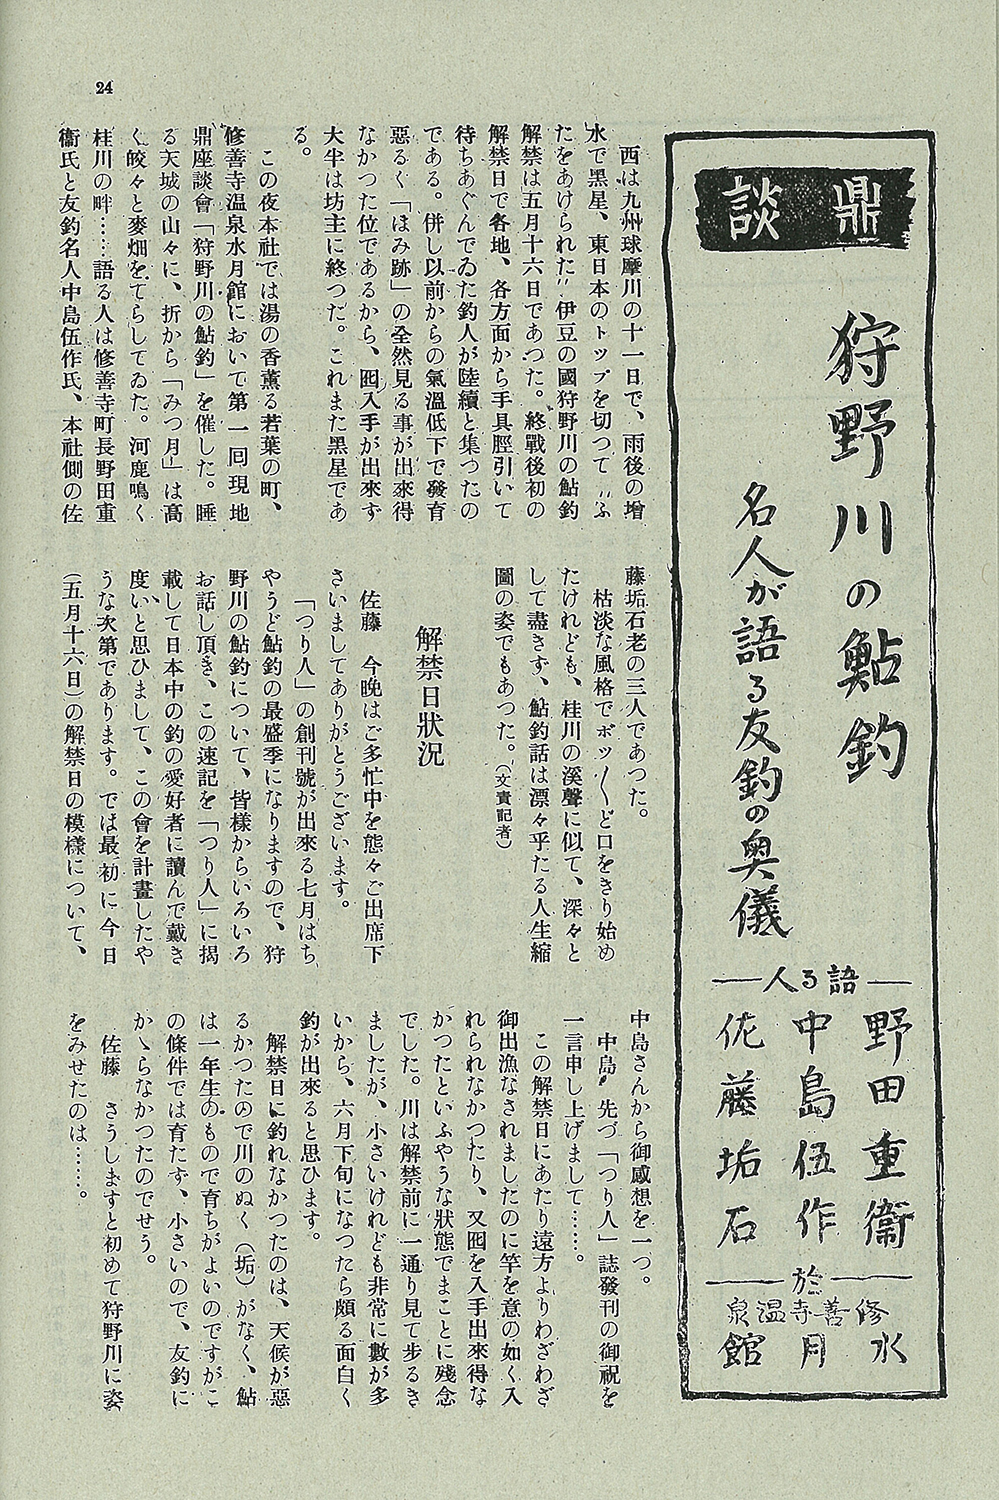 24
鼎談
狩野川の鮎釣
名人が語る友釣の奥儀
語る人
野田重衞
中島伍作
佐藤垢石
於
修善寺温泉
水月館
西は九州球摩川の十一日で、雨後の増
水で黑星、東日本のトップを切つて〝ふ
たをあけられた〟伊豆の國狩野川の鮎釣
解禁は五月十六日であつた。終戰後初の
解禁日で各地、各方面から手具脛引いて
待ちあぐんでゐた釣人が陸續と集つたの
である。併し以前からの氣溫低下で發育
惡るく「はみ跡」の全然見る事が出來得
なかつた位であるから、囮入手が出來ず
大半は坊主に終つた。これまた黑星であ
る。
この夜本社では湯の香薰る若葉の町、
修善寺温泉水月館において第一囘現地
鼎座談會「狩野川の鮎釣」を催した。睡
る天城の山々に、折から「みつ月」は高
く皎々と麥畑をてらしてゐた。河鹿鳴く
桂川の畔……語る人は修善寺町長野田重
衞氏と友釣名人中島伍作氏、本社側の佐
藤垢石老の三人であつた。
枯淡な風格でボツ〳〵と口をきり始め
たけれども、桂川の溪聲に似て、深々と
して盡きず、鮎釣話は漂々乎たる人生縮
圖の姿でもあつた。（文責記者）
解禁日狀況
佐藤　今晩はご多忙中を態々ご出席下
さいましてありがとうございます。
「つり人」の創刊號が出來る七月はち
やうど鮎釣の最盛季になりますので、狩
野川の鮎釣について、皆様からいろいろ
お話し頂き、この速記を「つり人」に揭
載して日本中の釣の愛好者に讀んで戴き
度いと思ひまして、この會を計畫したや
うな次第であります。では最初に今日
（五月十六日）の解禁日の模様について、
中島さんから御感想を一つ。
中島　先づ「つり人」誌發刊の御祝を
一言申し上げまして……。
この解禁日にあたり遠方よりわざわざ
御出漁なされましたのに竿を意の如く入
れられなかつたり、又囮を入手出來得な
かつたといふやうな狀態でまことに殘念
でした。川は解禁前に一通り見て步るき
ましたが、小さいけれども非常に數が多
いから、六月下旬になつたら頗る面白く
釣が出來ると思ひます。
解禁日に釣れなかつたのは、天候が惡
るかつたので川のぬく（垢）がなく、鮎
は一年生のもので育ちがよいのですがこ
の條件では育たず、小さいので、友釣に
かゝらなかつたのでせう。
佐藤　さうしますと初めて狩野川に姿
をみせたのは……。